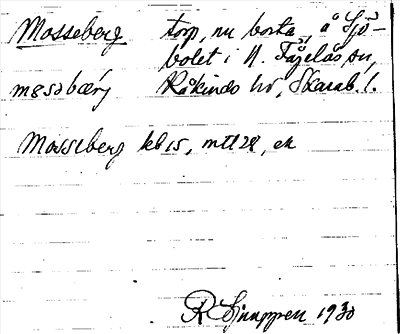 Mosseberg torp, nu borta, å Sjö-
bolet i N. Fågelås sn,
mɷsəbærj Kåkinds hd, Skarab. l.
Mosseberg kb 15, mtl 28, ek
R Sjunppen 1930